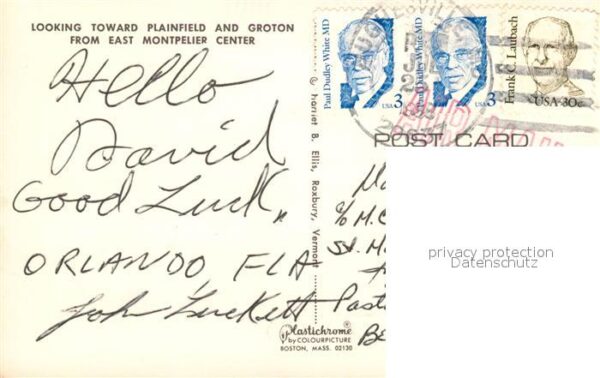 LOOKING TOWARD PLAINFIELD AND GROTON
FROM EAST MONTPELIER CENTER
Hello
David
Good Luck,
ORLANDO, FLA
John Luckett
© Harriet B. Ellis, Roxbury, Vermont
Plastichrome®
by COLOURPICTURE
BOSTON, MASS. 02130
Paul Dudley White MD
USA 3
Paul Dudley White MD
USA 3
Frank C. Laubach
USA 30c
POST CARD
c/o M.C
St. M
Past
privacy protection
Datenschutz